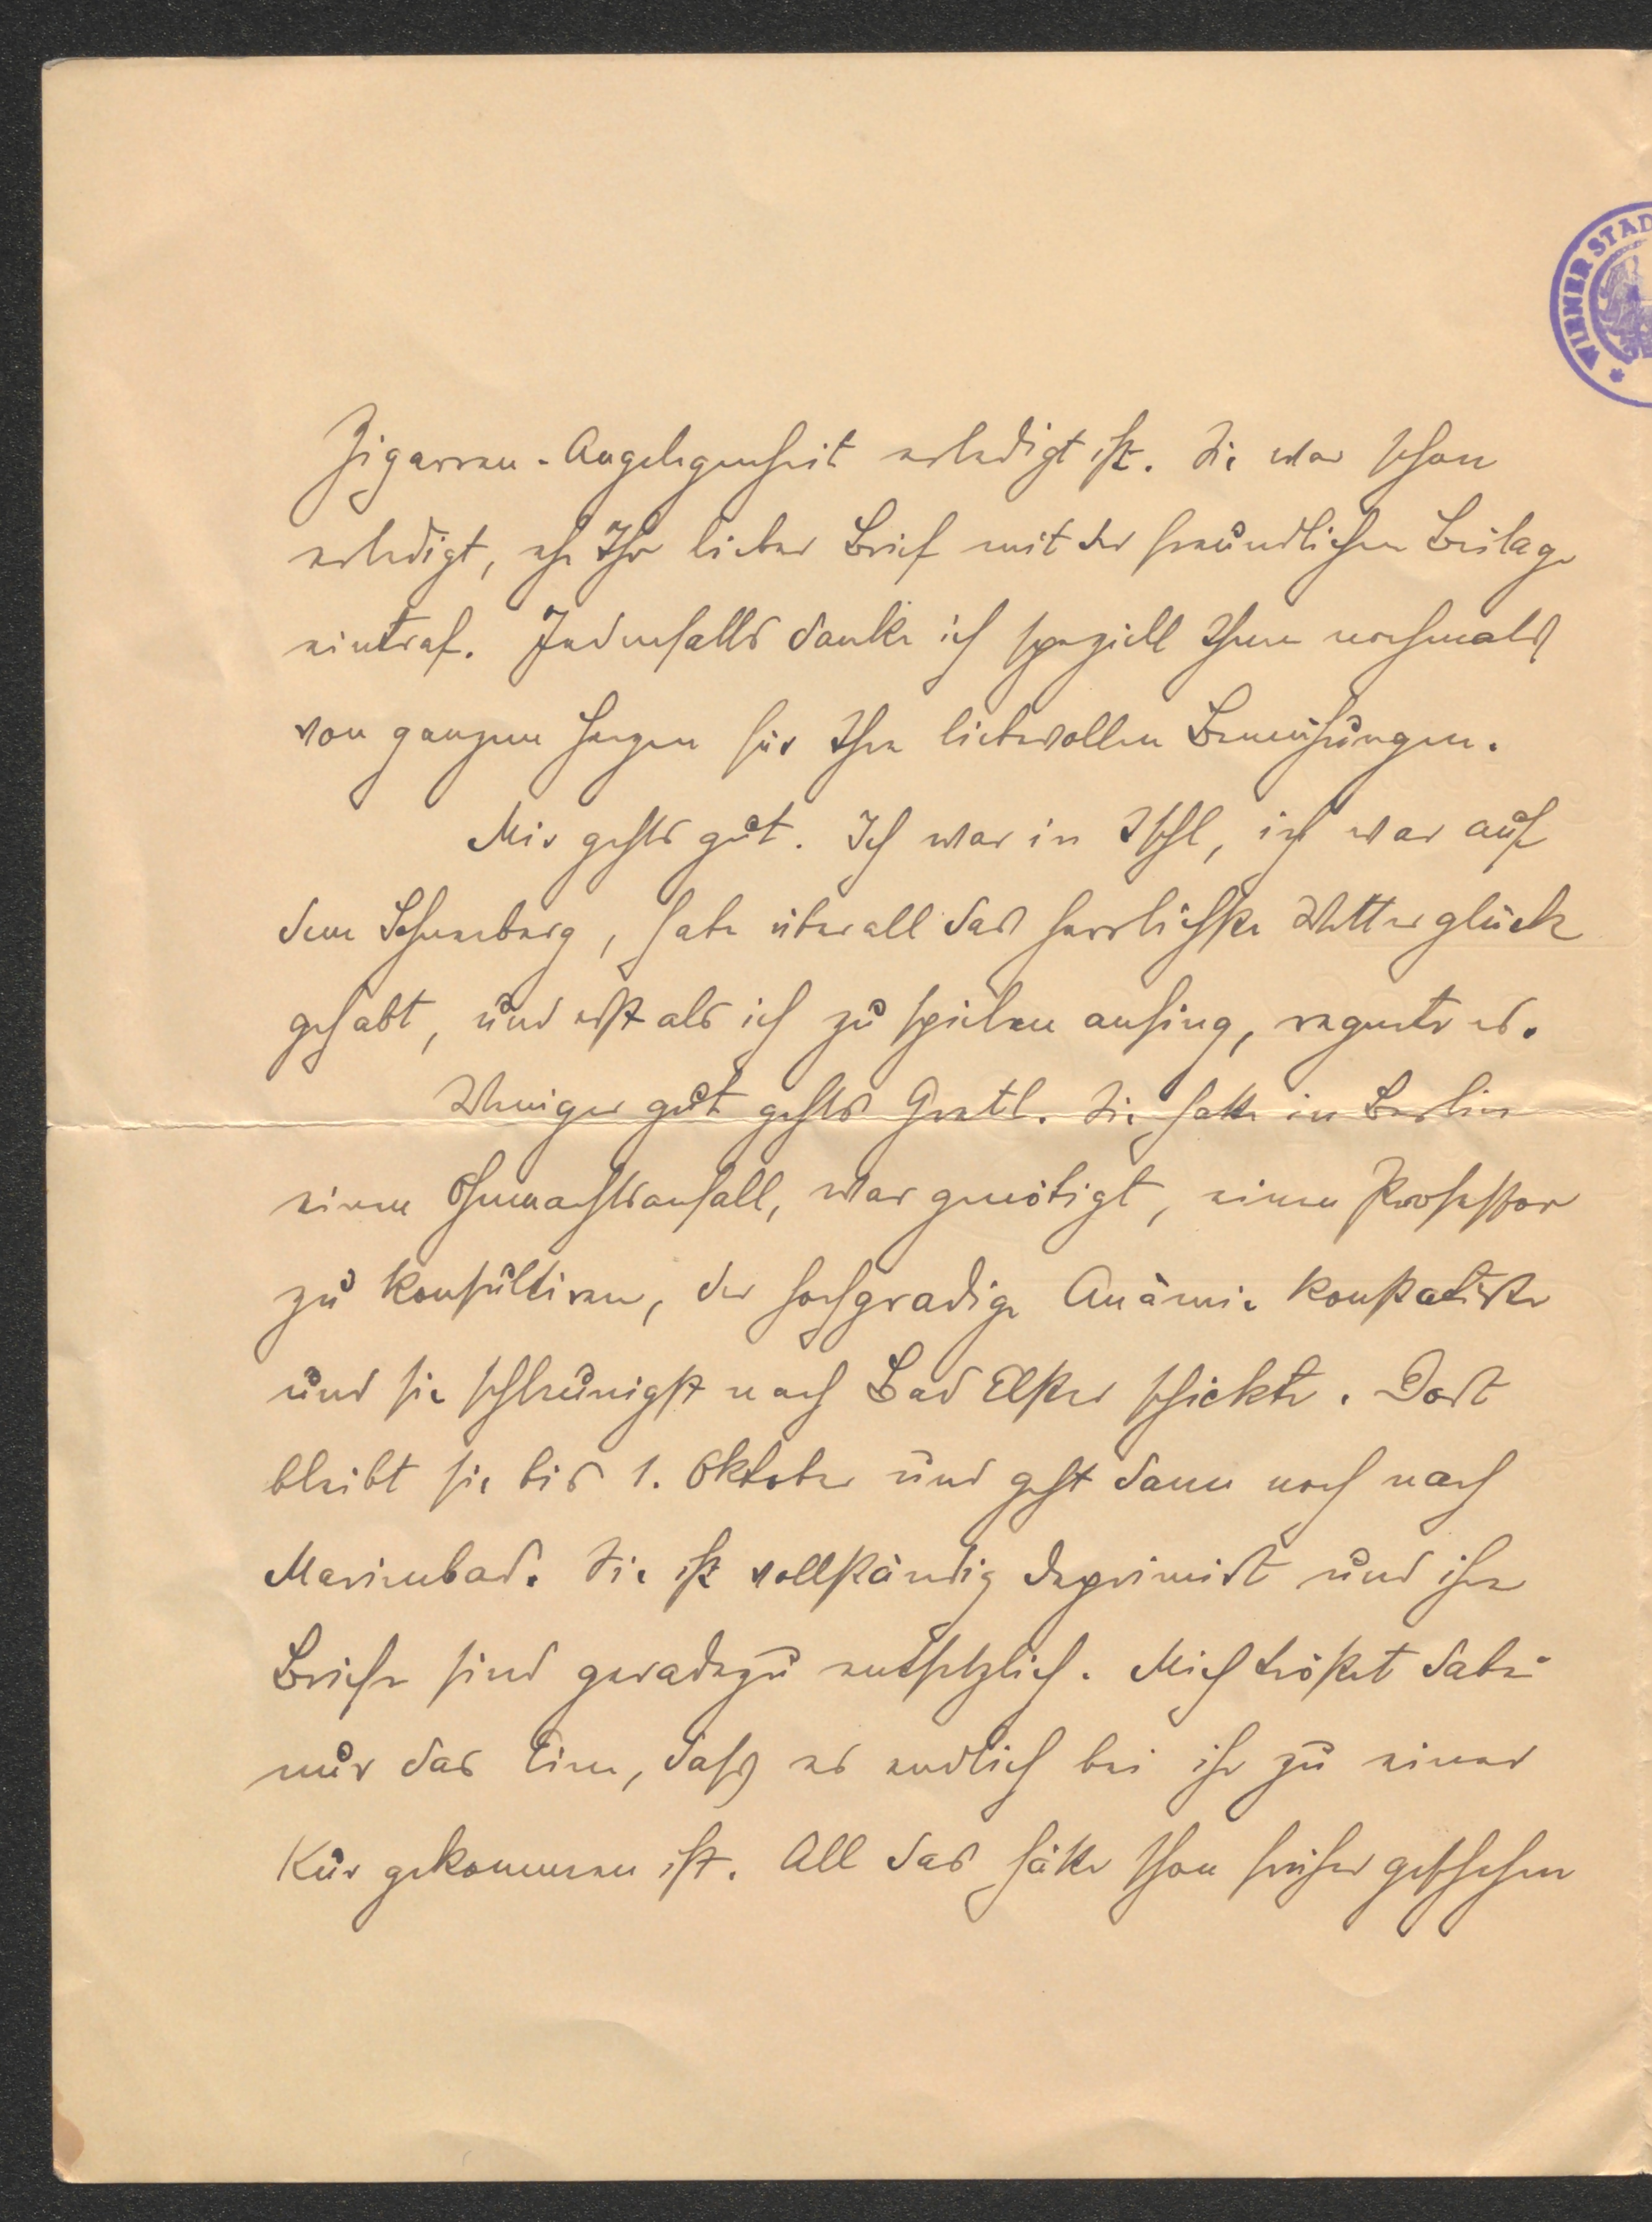 WIENER STAD
Zigarren-Angelegenheit erledigt ist. Sie war schon
erledigt, ehe Ihr lieber Brief mit der freundlichen Beilage
eintraf. Jedenfalls danke ich speziell Ihnen nochmals
von ganzem Herzen für Ihre liebevollen Bemühungen.
Mir gehts gut. Ich war in Ischl, ich war auf
dem Schneeberg, habe überall das herrlichste Wetterglück
gehabt, und erst als ich zu spielen anfing, regnete es.
Weniger gut gehts Gretl. Sie hatte in Berlin
einen Ohnmachtsanfall, war genötigt, einen Professor
zu konsultiren, der hochgradige Anämie konstatirte
und sie schleunigst nach Bad Elster schickte. Dort
bleibt sie bis 1. Oktober und geht dann noch nach
Marienbad. Sie ist vollständig deprimirt und ihre
Briefe sind geradezu entsetzlich. Mich tröstet dabei
nur das Eine, dass es endlich bei ihr zu einer
Kur gekommen ist. All das hätte schon früher geschehen